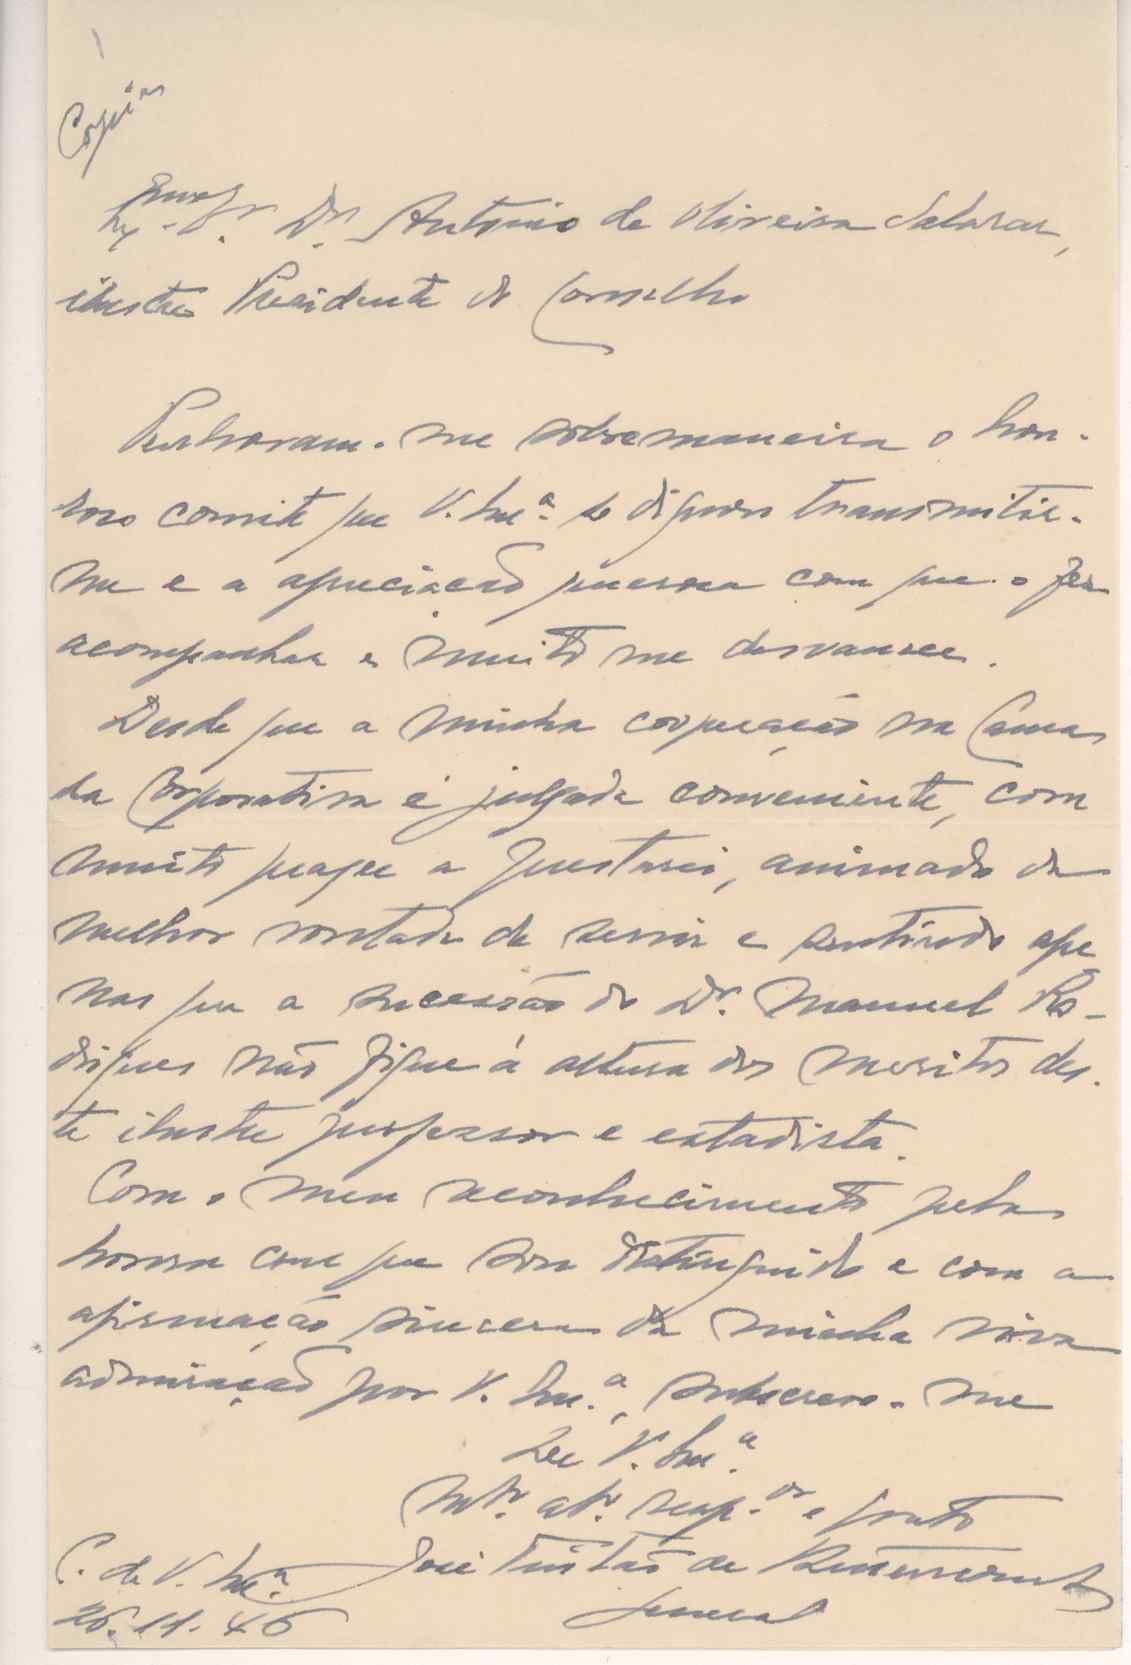 Cópia
Exmo Sr. Dr. António de Oliveira Salazar,
ilustre Presidente do Conselho
Penhoram-me sobremaneira o hon-
roso convite que V. Exª. se dignou transmitir-
me e a apreciação generosa com que o fez
acompanhar e muito me desvanece.
Desde que a minha cooperação na Camara
da Corporativa é julgada conveniente, com
muito prazer a prestarei, animado da
melhor vontade de servir e sentindo ape
nas que a sucessão do Dr. Manuel Ro-
drigues não fique á altura dos meritos des-
te ilustre professor e estadista.
Com o meu reconhecimento pela
honra com que sou distinguido e com a
afirmação sincera da minha viva
admiração por V. Exª., subscrevo-me
De V. Exª.
Mto. atº. resp.or e grato
José Tristão de Bettencourt
General
C. de V. Exª.
26.11.46